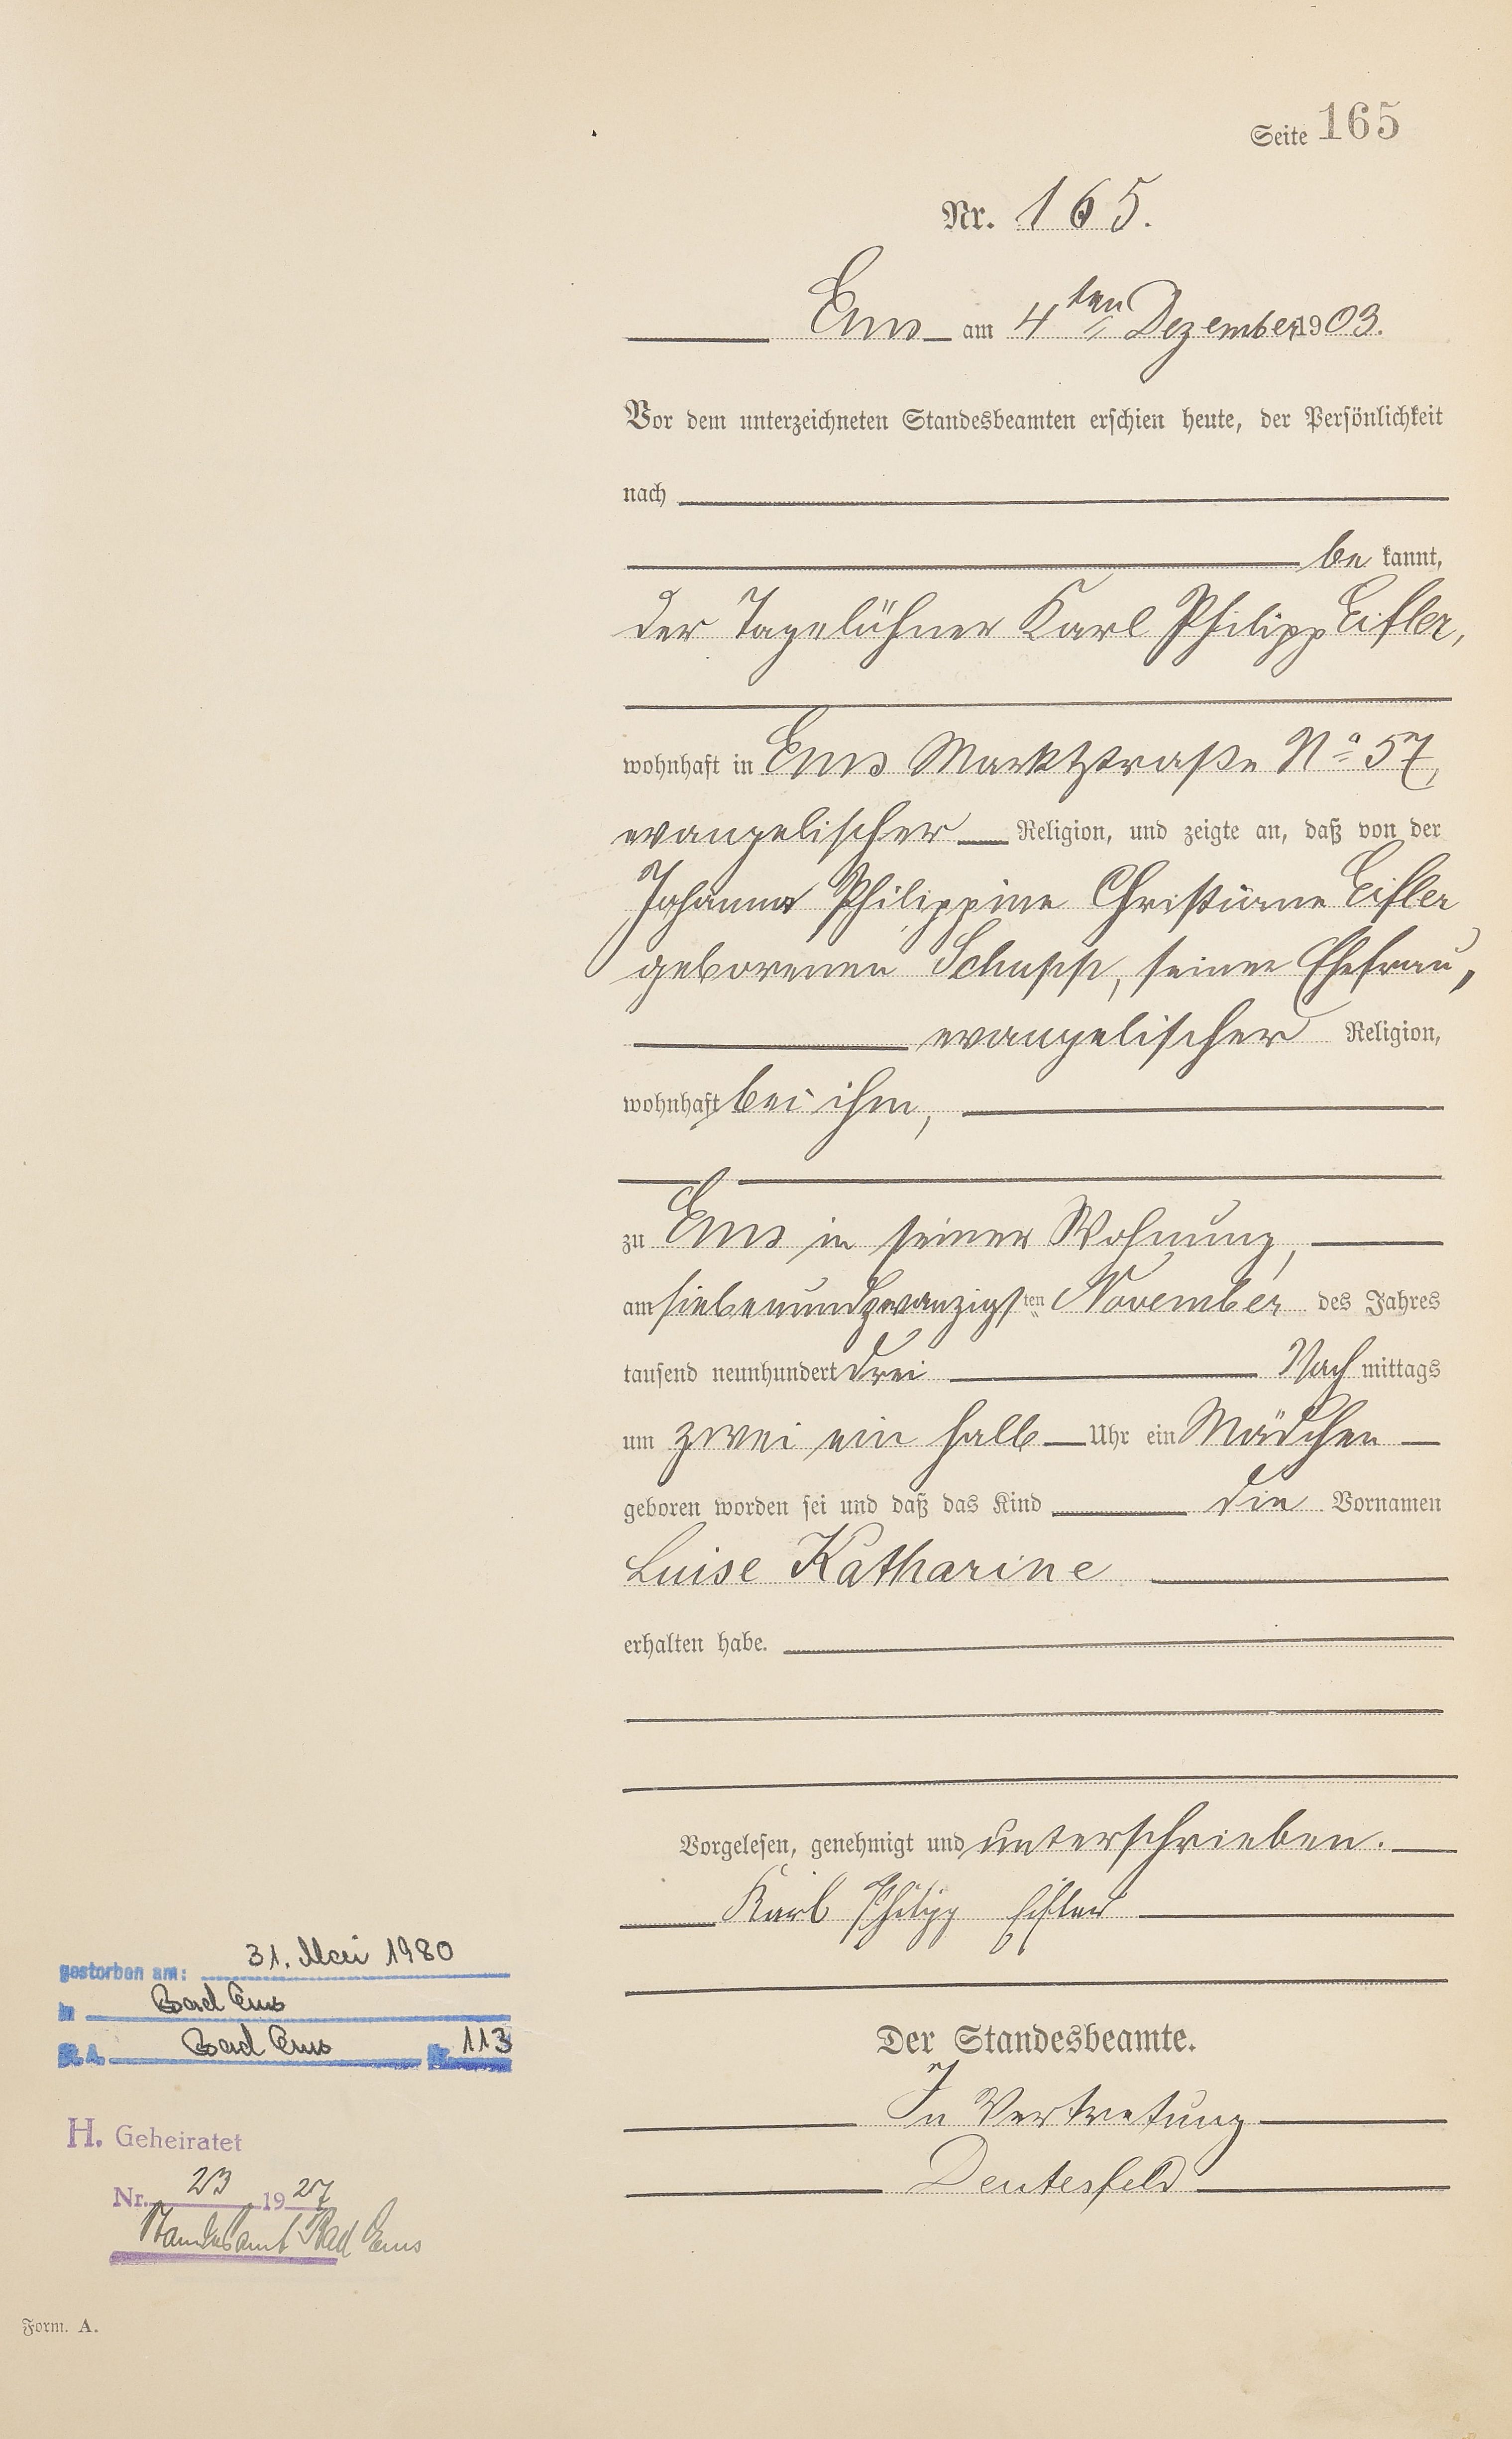 Seite 165
Nr. 165.
Ems am 4ten Dezember 1903.
Vor dem unterzeichneten Standesbeamten erschien heute, der Persönlichkeit
nach
be kannt,
der Tagelöhner Karl Philipp Eifler,
wohnhaft in Ems Marktstraße No 57,
evangelischer Religion, und zeigte an, daß von der
Johanna Philippine Christiane Eifler
geborenen Schupp, seiner Ehefrau,
evangelischer Religion,
wohnhaft bei ihm,
zu Ems in seiner Wohnung,
am siebenundzwanzigsten November des Jahres
tausend neunhundert drei Nach mittags
um zwei ein halb Uhr ein Mädchen
geboren worden sei und daß das Kind die Vornamen
Luise Katharine
erhalten habe.
Vorgelesen, genehmigt und unterschrieben.
Karl Philipp Eifler
Der Standesbeamte.
In Vertretung
Deutesfeld
gestorben am: 31. Mai 1980
in Bad Ems
St. A. Bad Ems Nr. 113
H. Geheiratet
Nr. 23 1927
Standesamt Bad Ems
Form. A.